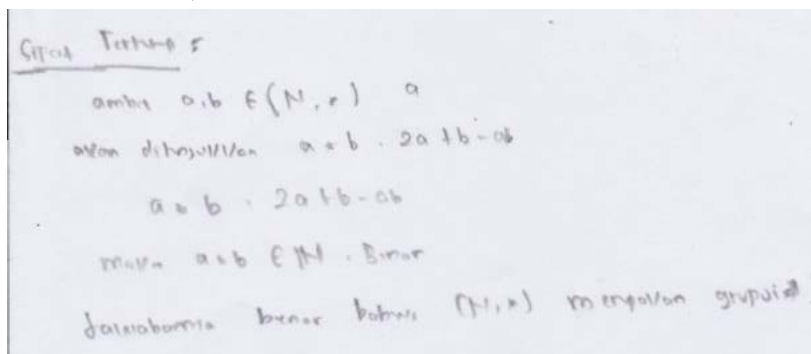 Sifat Tertutup :
ambil a,b ∈ (N, *) a
akan ditunjukkan a * b = 2a + b - ab
a * b = 2a + b - ab
maka a * b ∈ N . Benar
benar bahwa (N, *) merupakan grupoid